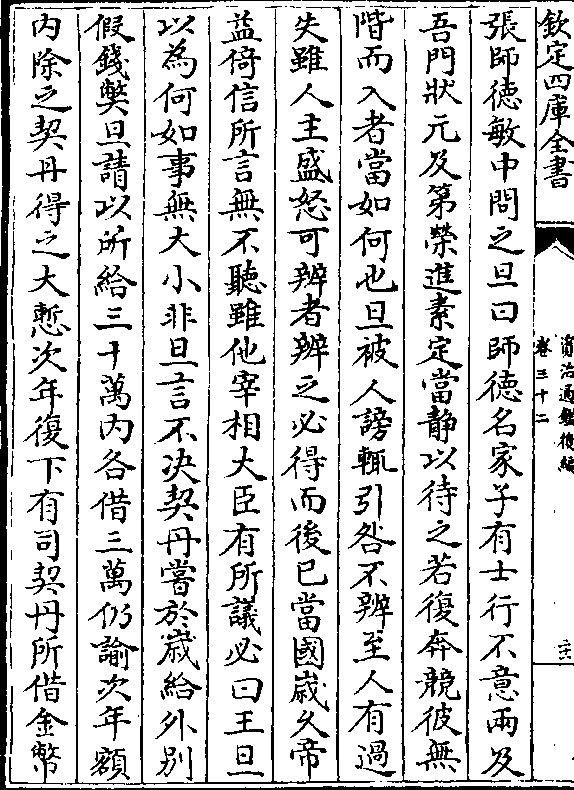 欽定四庫全書
資治通鑑後編
卷三十二
張師德敏中問之旦曰師德名家子有士行不意兩及
吾門狀元及第榮進素定當靜以待之若復奔競彼無
階而入者當如何也旦被人謗輒引咎不辨至人有過
失雖人主盛怒可辨者辨之必得而後已當國嵗久帝
益倚信所言無不聽雖他宰相大臣有所議必曰王旦
以為何如事無大小非旦言不決契丹嘗於嵗給外別
假錢幣旦請以所給三十萬內各借三萬仍諭次年額
內除之契丹得之大慙次年復下有司契丹所借金幣